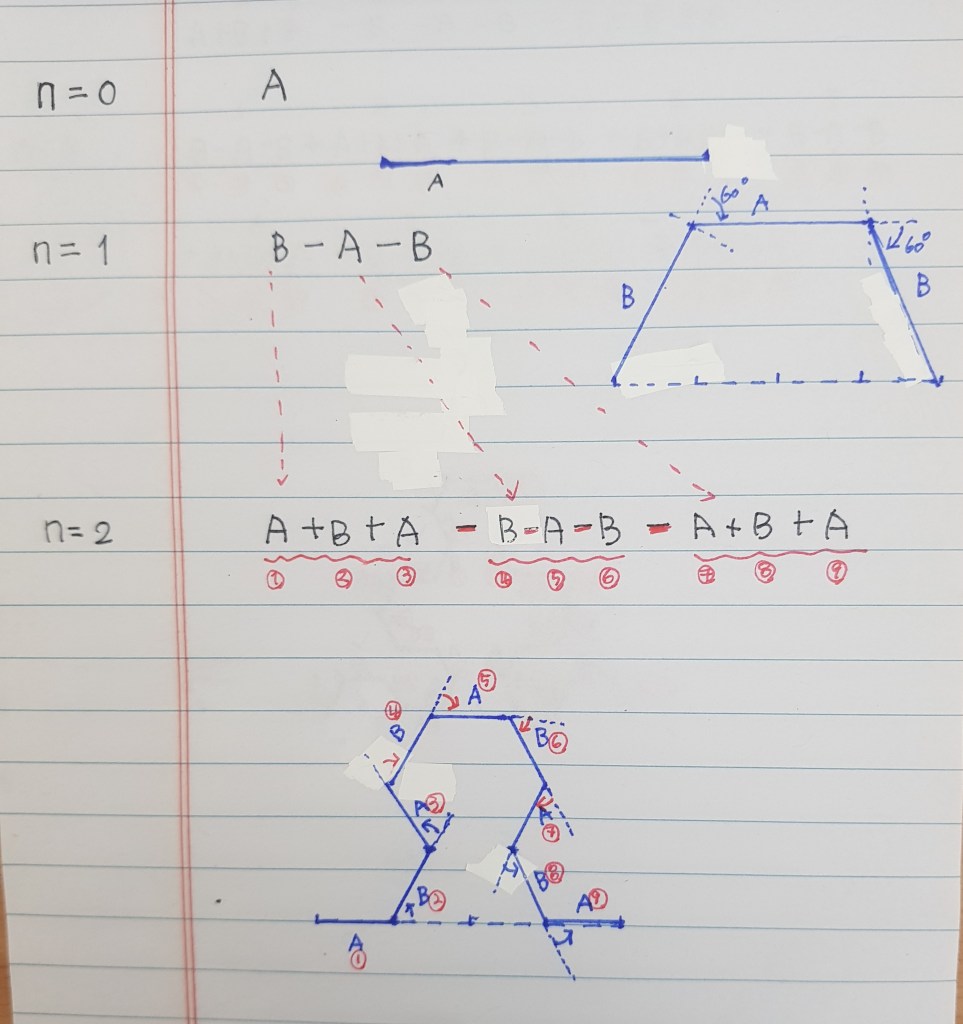 n = 0 A
A
60° A
n = 1 B - A - B
60°
B B
n = 2 A + B + A - B - A - B - A + B + A
① ② ③ ④ ⑤ ⑥ ⑦ ⑧ ⑨
A ⑤
④
B B ⑥
A ③ A
⑦
B ⑧
B ② A ⑨
A
①